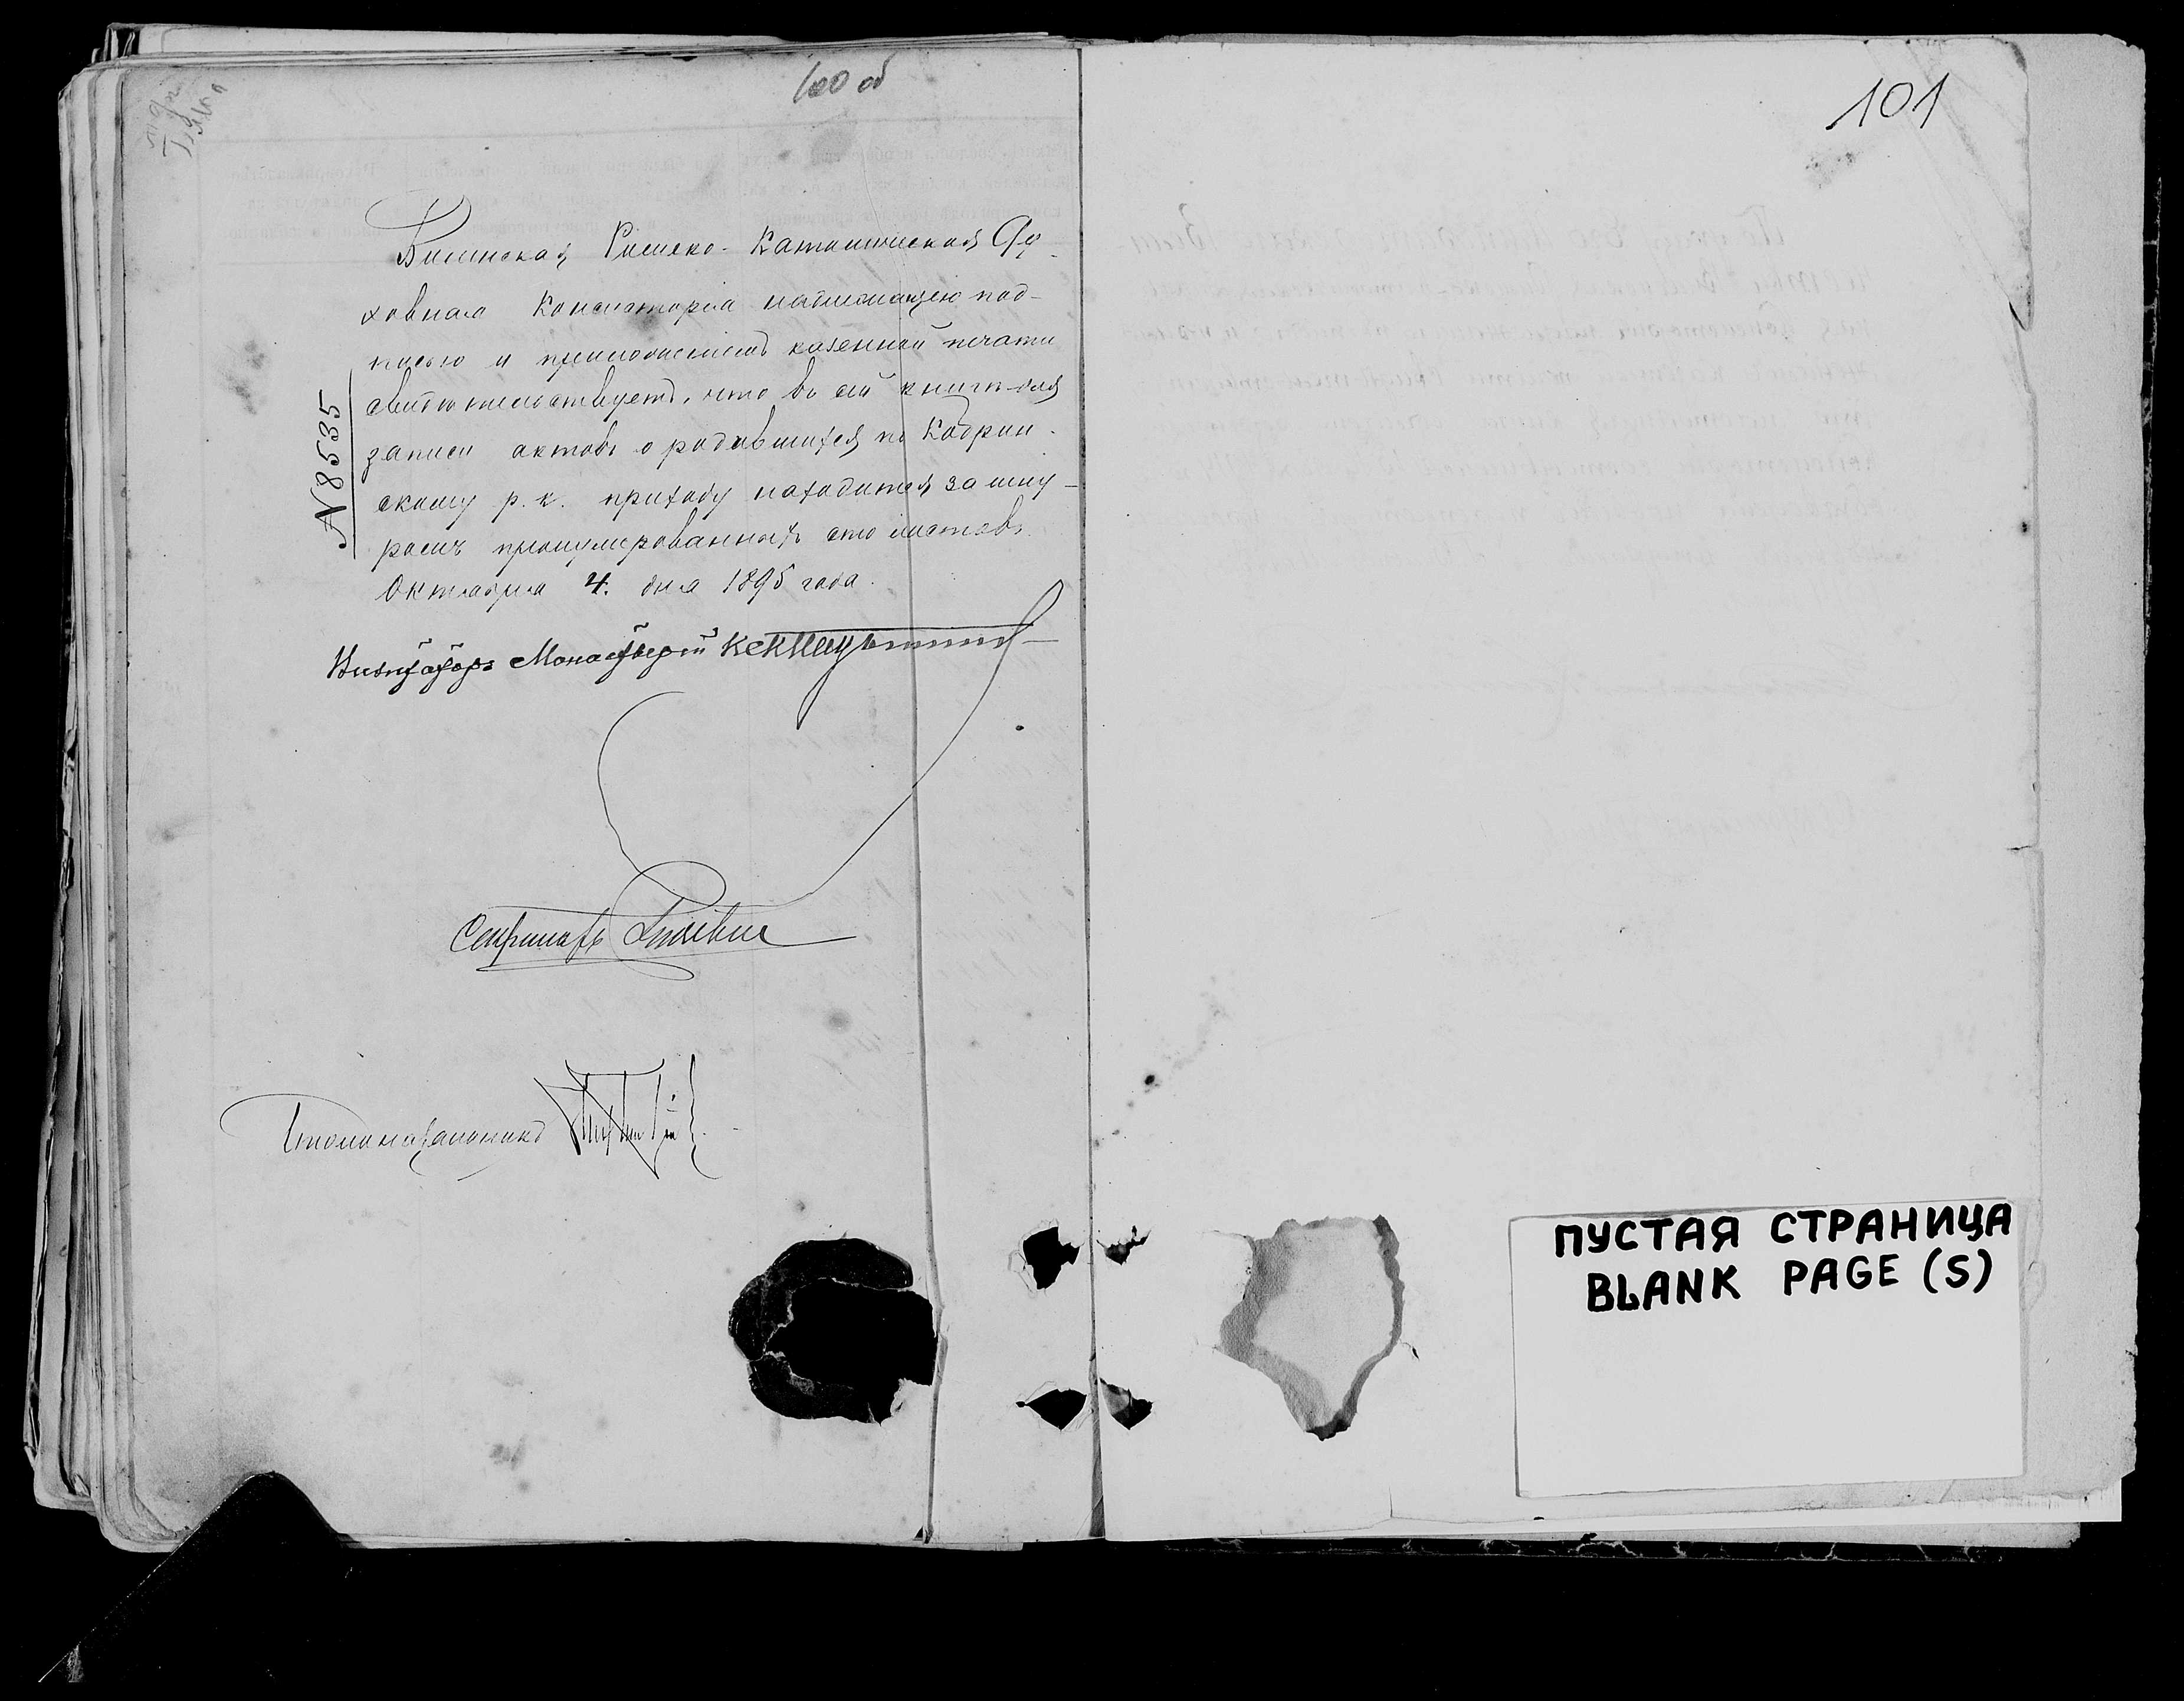 100 об
Виленская Римско-Католическая Ду-
ховная Консисторія надлежащею под-
писью и приложеніемъ казенной печати
свидѣтельствуетъ, что въ сей книгѣ для
записи актовъ о родившихся по Кобрин-
скому р. к. приходу находится за шну-
ромъ пронумерованныхъ сто листовъ.
Октября 4. дня 1895 года.
№ 8535
Визитаторъ Монастырей
Секретарь
Столоначальникъ
101
ПУСТАЯ СТРАНИЦА
BLANK PAGE (S)